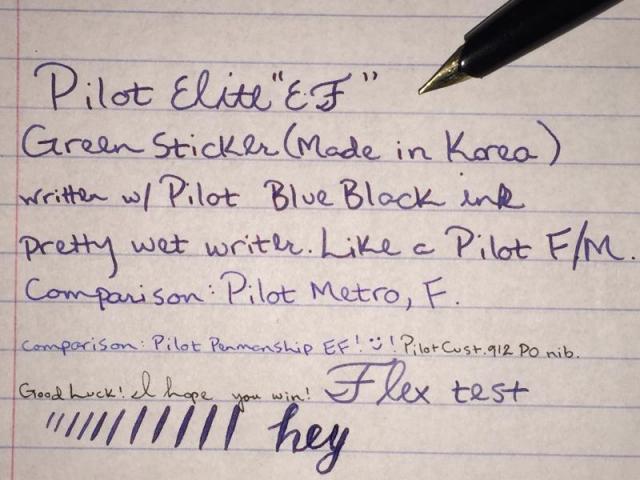 Pilot Elite "EF"
Green Sticker (Made in Korea)
written w/ Pilot Blue Black ink
pretty wet writer. Like a Pilot F/M.
Comparison: Pilot Metro, F.
Comparison: Pilot Penmanship EF! :)! Pilot Cust. 912 PO nib.
Good Luck! I hope you win! Flex test
hey